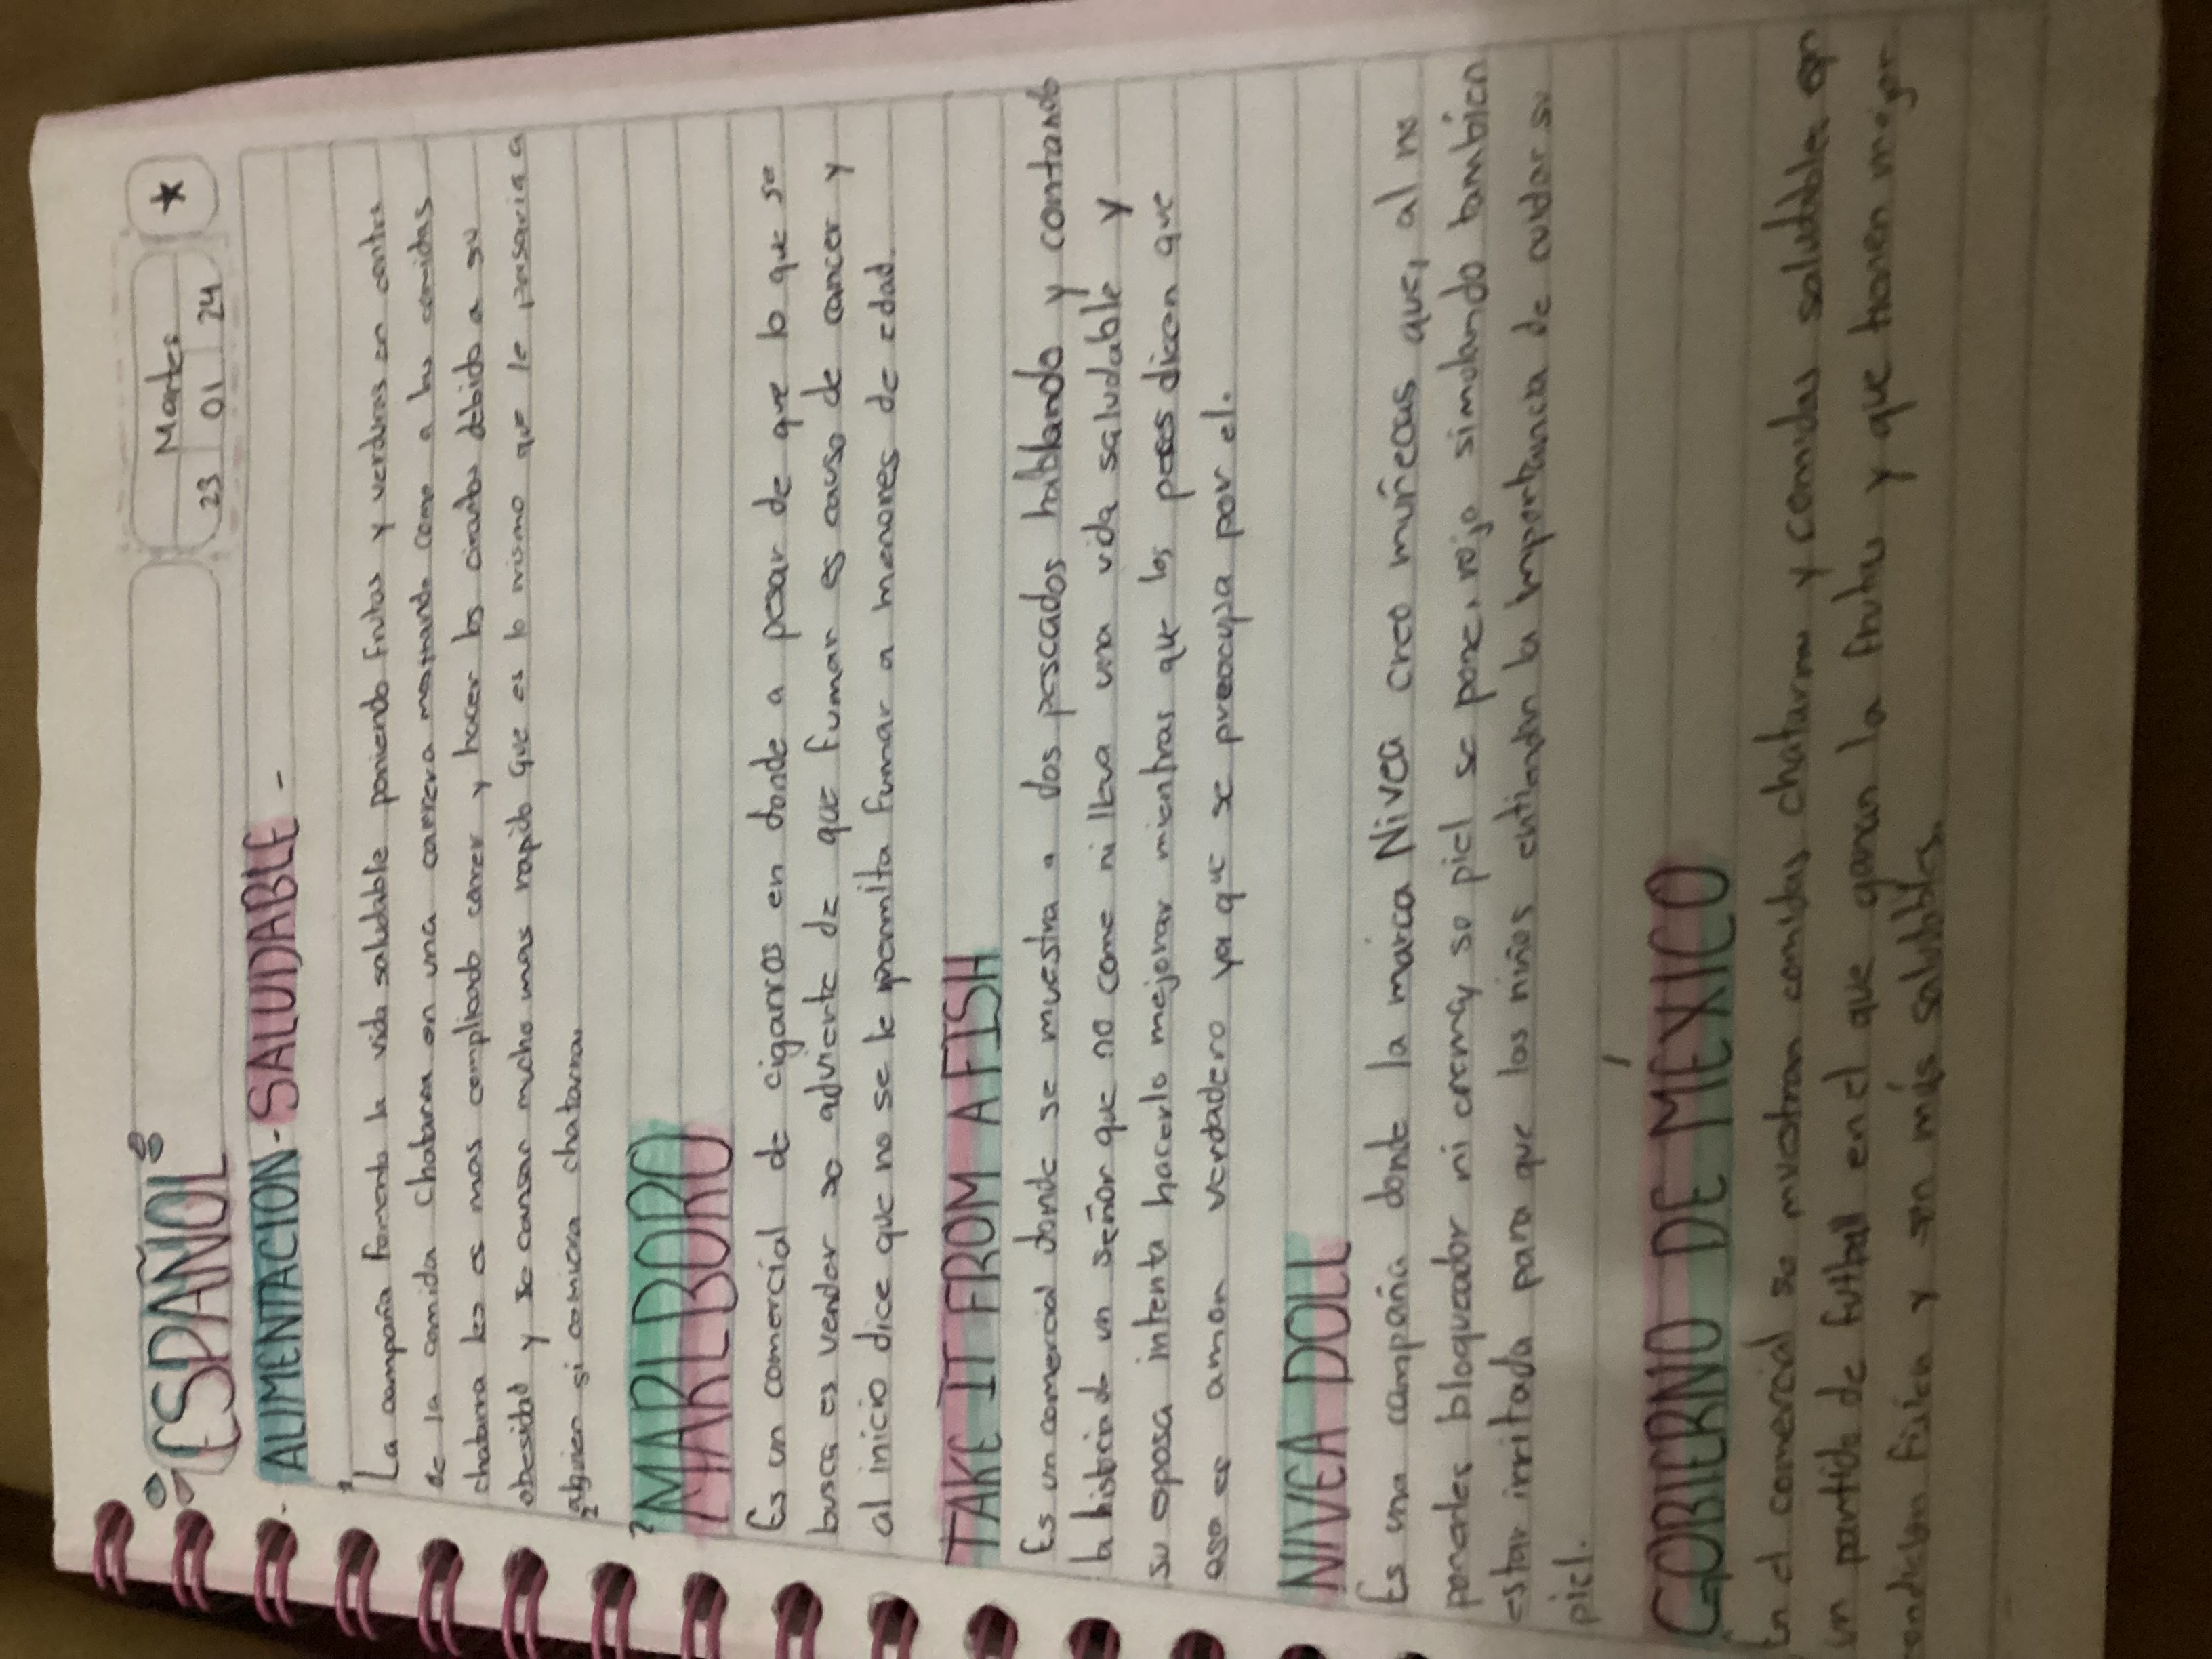 ESPAÑOL
Martes
23 01 24
- ALIMENTACION - SALUDABLE -
La campaña fomenta la vida saludable poniendo frutas y verduras en contra
de la comida chatarra en una carrera mostrando como a las comidas
chatarra les es mas complicado correr y hacer los cuanto debido a su
obesidad y se cansan mucho mas rapido que es lo mismo que le pasaria a
alguien si comiera chatarra.
MARLBORO
Es un comercial de cigarros en donde a pesar de que lo que se
busca es vender se advierte de que fumar es causa de cancer y
al inicio dice que no se le permita fumar a menores de edad.
TAKE IT FROM A FISH
Es un comercial donde se muestra a dos pescados hablando y contando
la historia de un señor que no come ni lleva una vida saludable y
su esposa intenta hacerlo mejorar mientras que los peces dicen que
eso es amor verdadero ya que se preocupa por el.
NIVEA DOLL
Es una campaña donde la marca Nivea creo muñecas que, al no
ponerles bloqueador ni crema, su piel se pone rojo simulando también
estar irritada para que los niños entiendan la importancia de cuidar su
piel.
GOBIERNO DE MÉXICO
En el comercial se muestran comidas chatarra y comidas saludables en
un partido de futball en el que ganan la fruta y que tienen mejor
condición física y son más saludables.